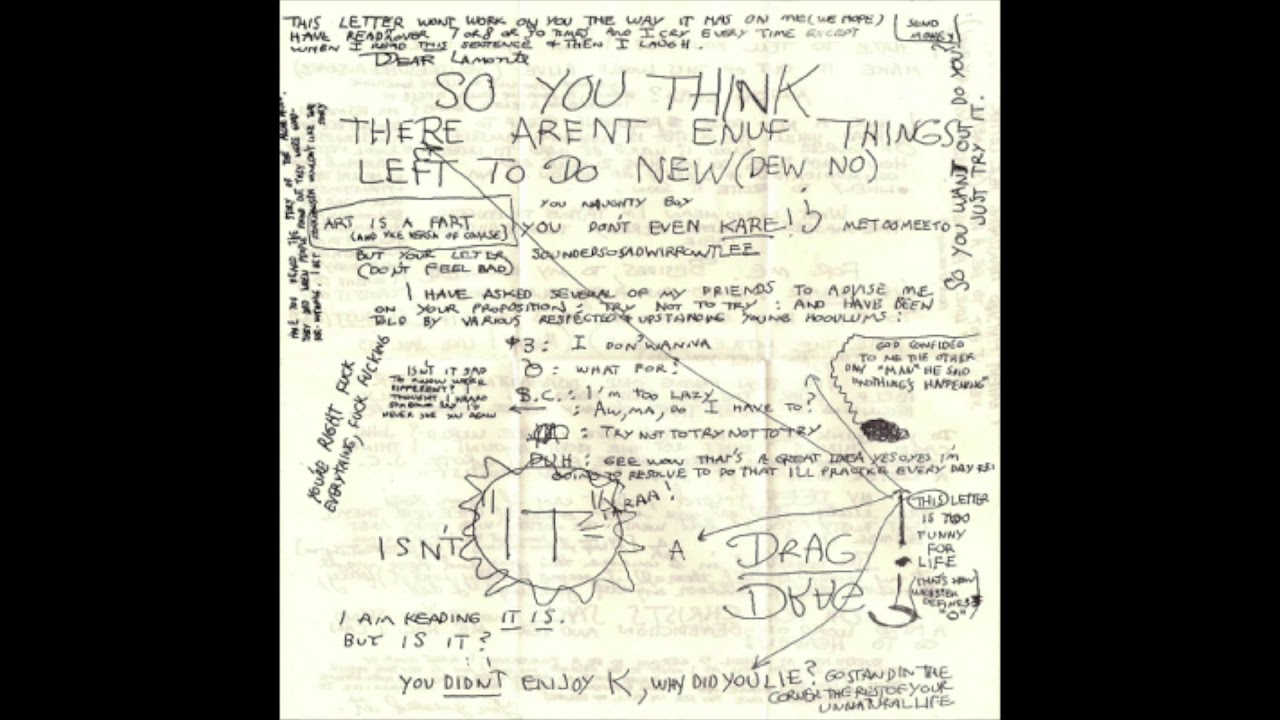 THIS LETTER WONT WORK ON YOU THE WAY IT HAS ON ME (WE HOPE)
HAVE READ OVER 7 OR 8 OR 30 TIMES AND I CRY EVERY TIME EXCEPT
WHEN I READ THIS SENTENCE & THEN I LAUGH.
SEND
MONEY
DEAR LAMONTE
SO YOU THINK
THERE ARENT ENUF THINGS
LEFT TO DO NEW (DEW NO)
SO YOU WANT OUT DO YOU?
JUST TRY IT.
YOU NAUGHTY BOY
ART IS A FART
(AND VICE VERSA OF COURSE)
YOU DONT EVEN KARE!
METOOMEETO
BUT YOUR LETTER SOUNDERSOSADWIRROWTLEE
(DON'T FEEL BAD)
I HAVE ASKED SEVERAL OF MY FRIENDS TO ADVISE ME
ON YOUR PROPOSITION: TRY NOT TO TRY: AND HAVE BEEN
TOLD BY VARIOUS RESPECTED & UPSTANDING YOUNG HOODLUMS:
#3: I DON'T WANNA
: WHAT FOR?
B.C.: I'M TOO LAZY
: AW, MA, DO I HAVE TO?
: TRY NOT TO TRY NOT TO TRY
DUH: GEE WOW THAT'S A GREAT IDEA YESOYES I'M
GOING TO RESOLVE TO DO THAT I'LL PRACTICE EVERY DAY
ISN'T IT SAD
TO KNOW WE'RE
DIFFERENT? I
THOUGHT I HEARD
SOMEONE SAY I'D
NEVER SEE YOU AGAIN
YOU'RE RIGHT FUCK
EVERYTHING, FUCK FUCKING
GOD CONFIDED
TO ME THE OTHER
DAY "MAN" HE SAID
"NOTHING'S HAPPENING"
TARAA!
ISN'T "IT" A DRAG
THIS LETTER
IS TOO
FUNNY
FOR
LIFE
(THAT'S HOW
WEBSTER
DEFINES
"O")
I AM READING IT IS.
BUT IS IT?
YOU DIDNT ENJOY K, WHY DID YOU LIE? GO STAND IN THE
CORNER THE REST OF YOUR
UNNATURAL LIFE